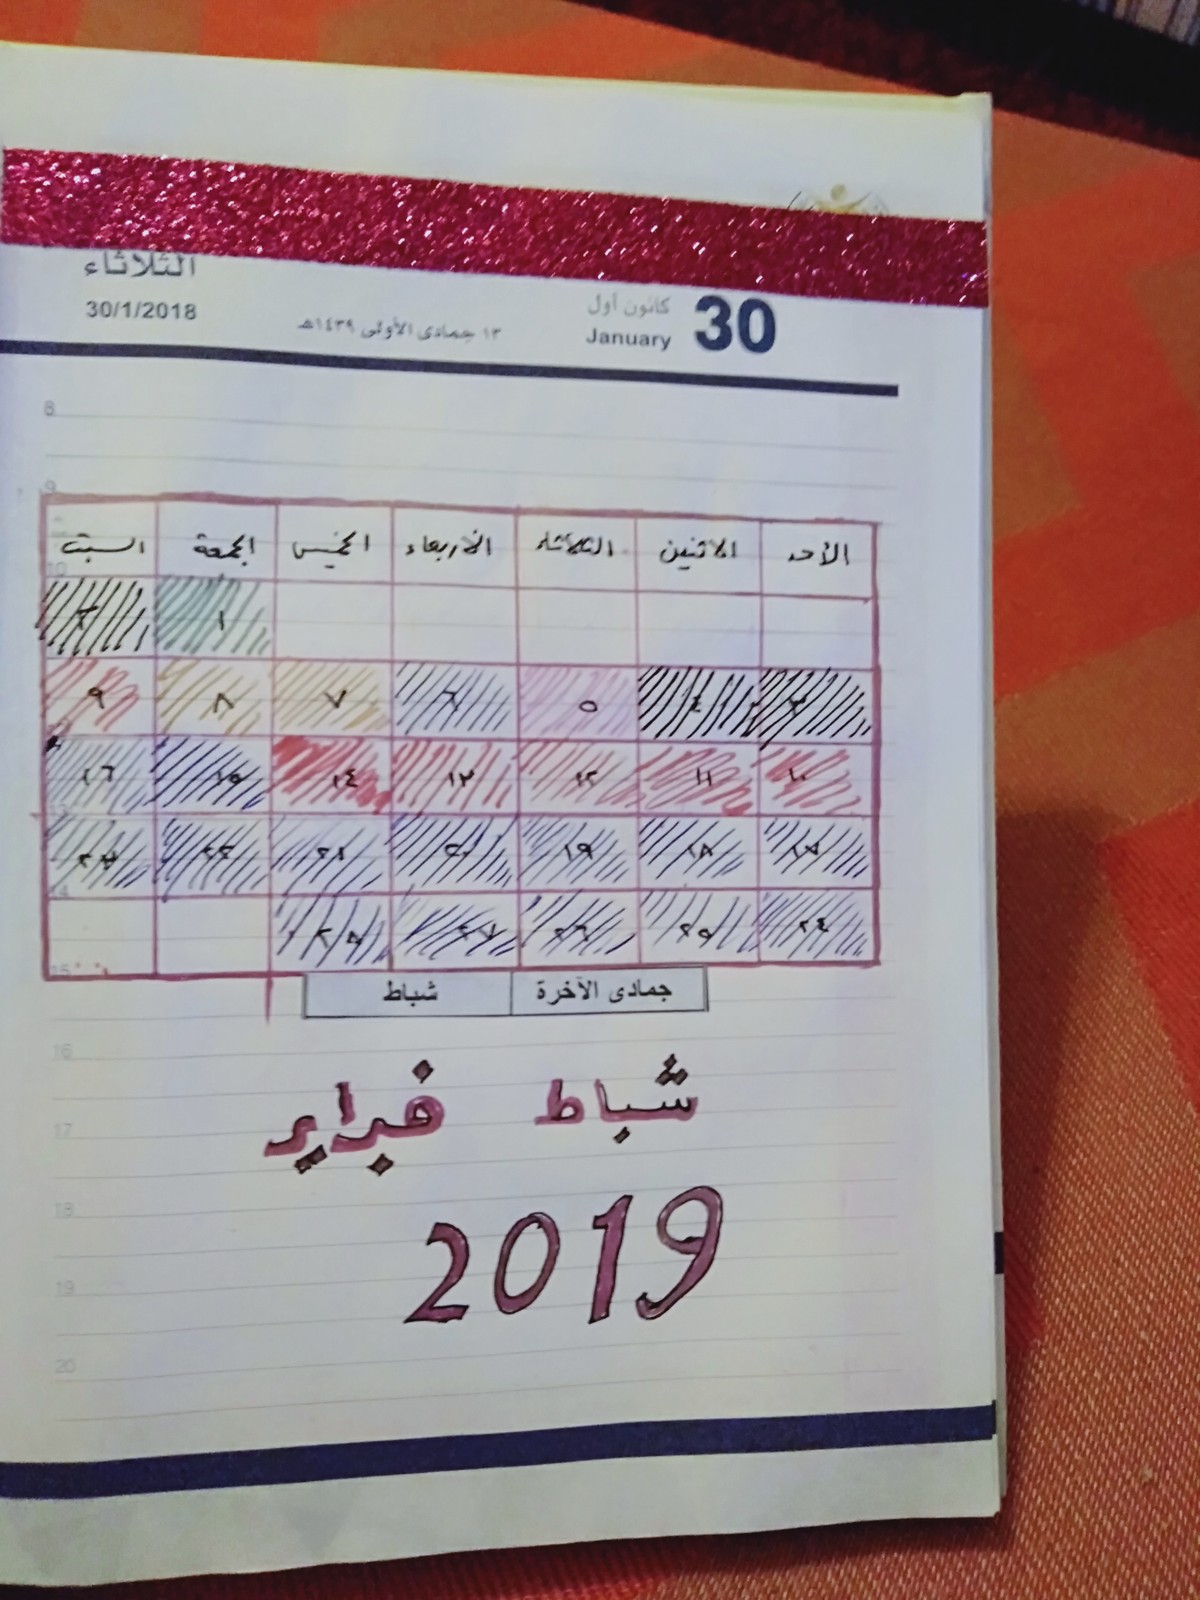 الثلاثاء
30 كانون أول
30/1/2018 ١٣ جمادى الأولى ١٤٣٩هـ January
8
9
الأحد الاثنين الثلاثاء الأربعاء الخميس الجمعة السبت
10
١ ٢
٣ ٤ ٥ ٦ ٧ ٨ ٩
١٠ ١١ ١٢ ١٣ ١٤ ١٥ ١٦
13
١٧ ١٨ ١٩ ٢٠ ٢١ ٢٢ ٢٣
14
٢٤ ٢٥ ٢٦ ٢٧ ٢٨
15
جمادى الآخرة شباط
16
شباط فبراير
17
18
2019
19
20